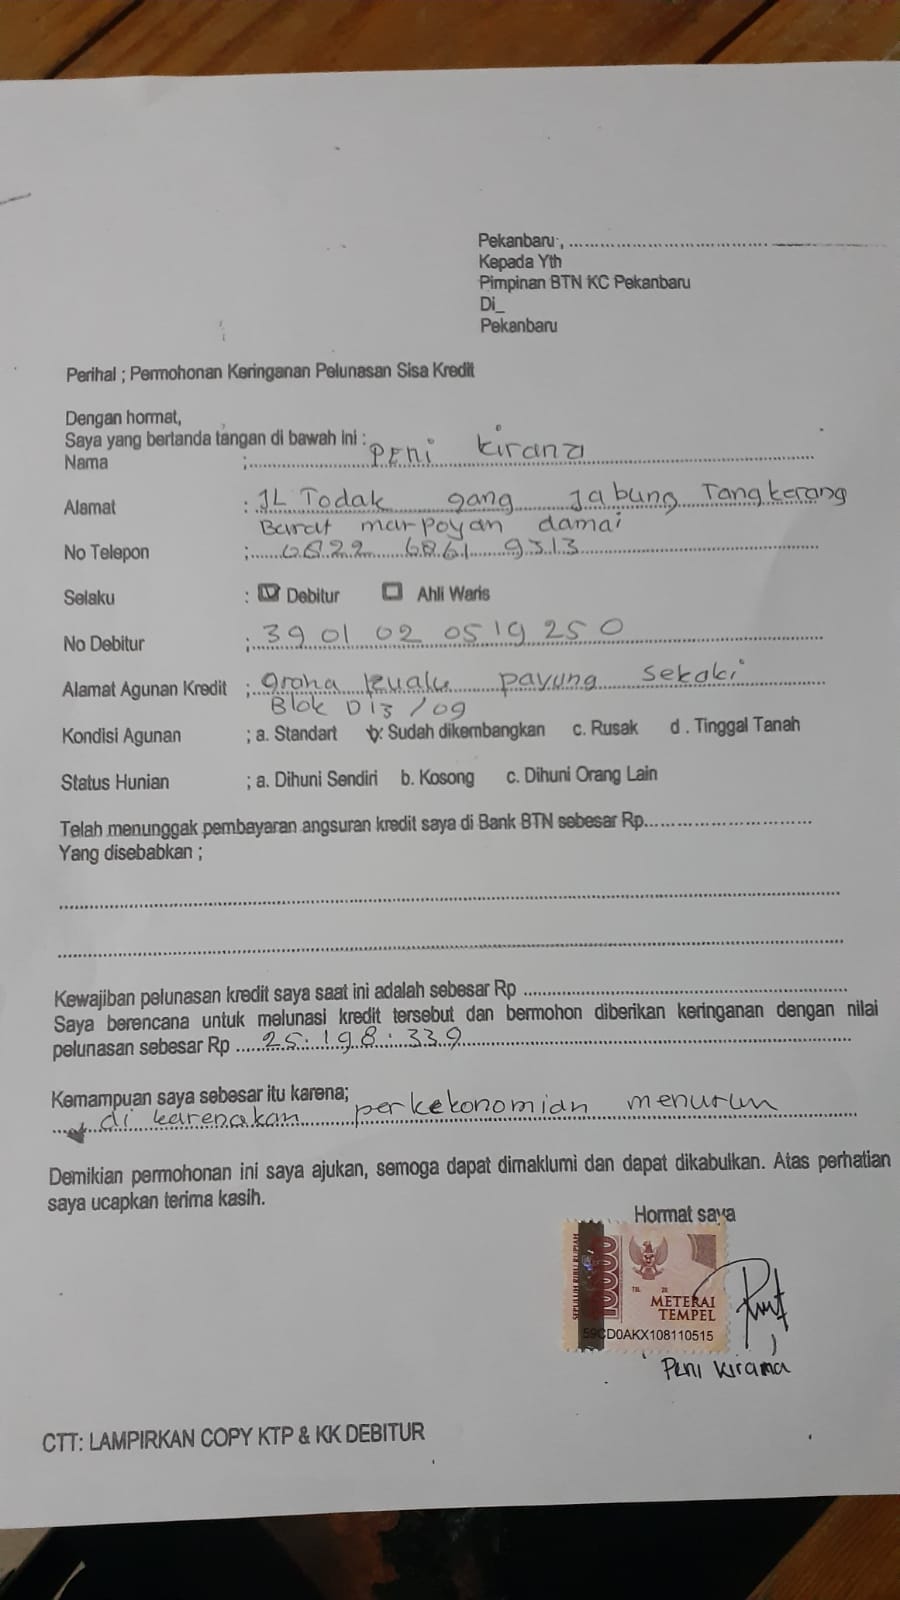 Pekanbaru, ............................................
Kepada Yth
Pimpinan BTN KC Pekanbaru
Di_
Pekanbaru
Perihal ; Permohonan Keringanan Pelunasan Sisa Kredit
Dengan hormat,
Saya yang bertanda tangan di bawah ini :
Nama ; PENI Kirana
Alamat : JL Todak gang Jabung Tangkerang
Barat marpoyan damai
No Telepon ; 0822 6861 9313
Selaku : ☑ Debitur ☐ Ahli Waris
No Debitur ; 39 01 02 0519 25 0
Alamat Agunan Kredit ; graha kualu payung sekaki
Blok D13 /09
Kondisi Agunan ; a. Standart b. Sudah dikembangkan c. Rusak d . Tinggal Tanah
Status Hunian ; a. Dihuni Sendiri b. Kosong c. Dihuni Orang Lain
Telah menunggak pembayaran angsuran kredit saya di Bank BTN sebesar Rp..............................
Yang disebabkan ;
Kewajiban pelunasan kredit saya saat ini adalah sebesar Rp ..........................................
Saya berencana untuk melunasi kredit tersebut dan bermohon diberikan keringanan dengan nilai
pelunasan sebesar Rp 25.198.339
Kemampuan saya sebesar itu karena;
di karenakan perkekonomian menurun
Demikian permohonan ini saya ajukan, semoga dapat dimaklumi dan dapat dikabulkan. Atas perhatian
saya ucapkan terima kasih.
Hormat saya
SEPULUH RIBU RUPIAH
10000
TGL. 20
METERAI
TEMPEL
59CD0AKX108110515
Peni Kirama
CTT: LAMPIRKAN COPY KTP & KK DEBITUR